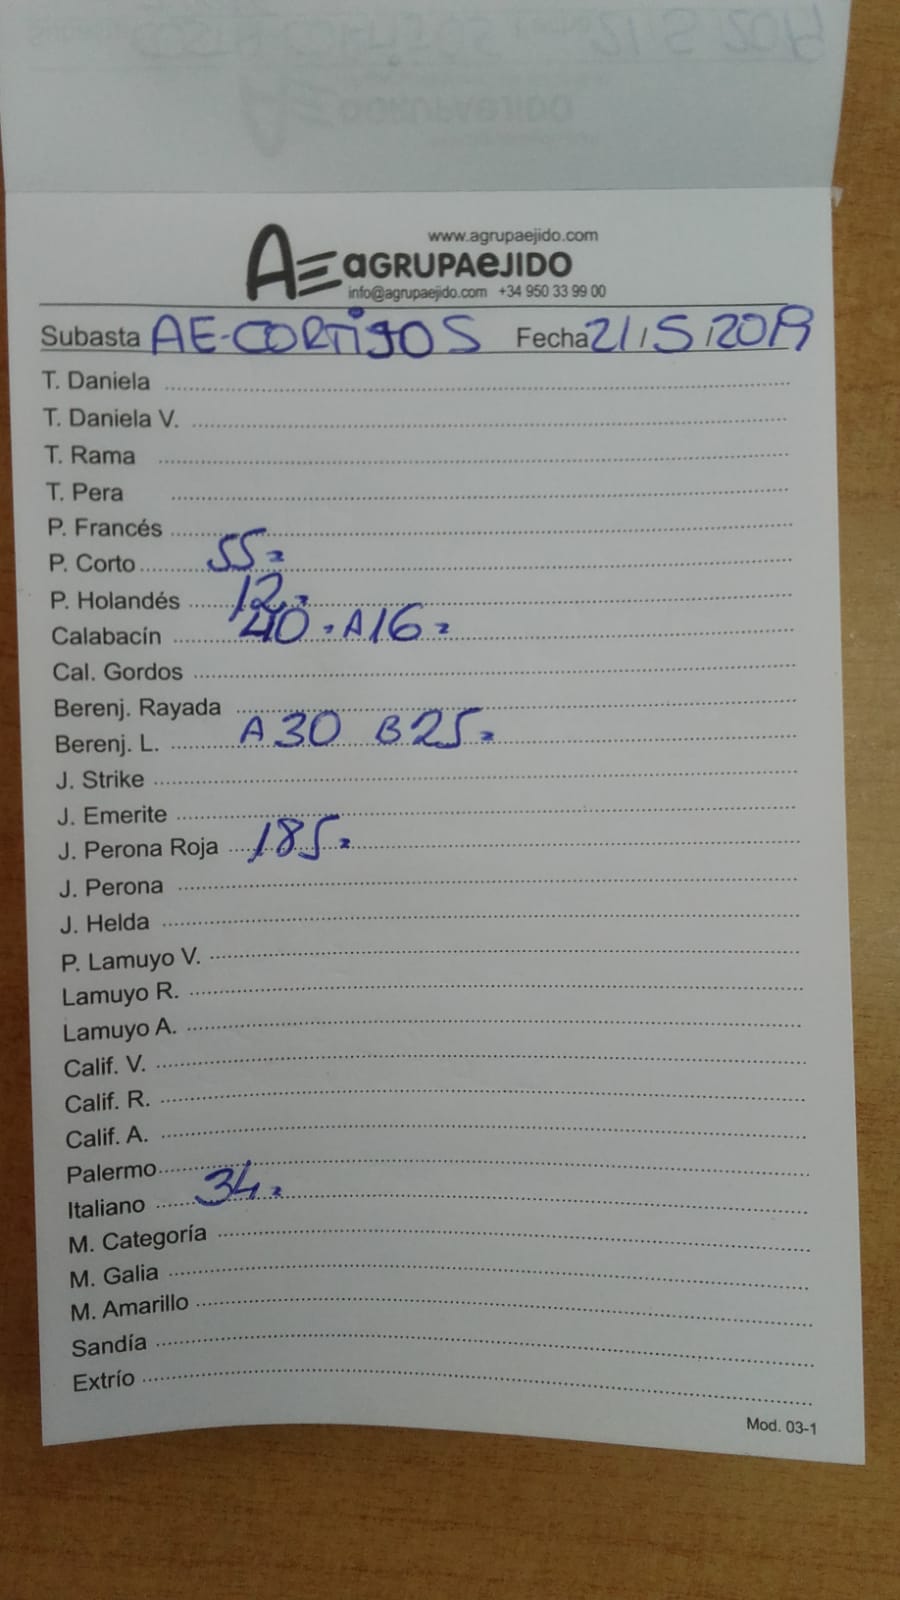 www.agrupaejido.com
AE AGRUPAEJIDO
info@agrupaejido.com +34 950 33 99 00
Subasta AE-CORTIJOS Fecha 21/5/2019
T. Daniela
T. Daniela V.
T. Rama
T. Pera
P. Francés
P. Corto 55
P. Holandés 12
Calabacín 40 A16
Cal. Gordos
Berenj. Rayada
Berenj. L. A30 B25
J. Strike
J. Emerite
J. Perona Roja 185
J. Perona
J. Helda
P. Lamuyo V.
Lamuyo R.
Lamuyo A.
Calif. V.
Calif. R.
Calif. A.
Palermo
Italiano 34
M. Categoría
M. Galia
M. Amarillo
Sandía
Extrío
Mod. 03-1